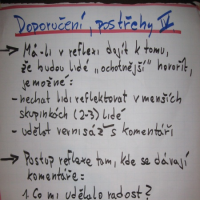 Doporučení, postřehy IV
→ Má-li v reflexi dojít k tomu,
že budou lidé „ochotnější" hovořit,
je možné:
- nechat lidi reflektovat v menších
skupinkách (2-3) lidé
- udělat vernisáž s komentáři
→ Postup reflexe tam, kde se dávají
komentáře:
1. Co mi udělalo radost?